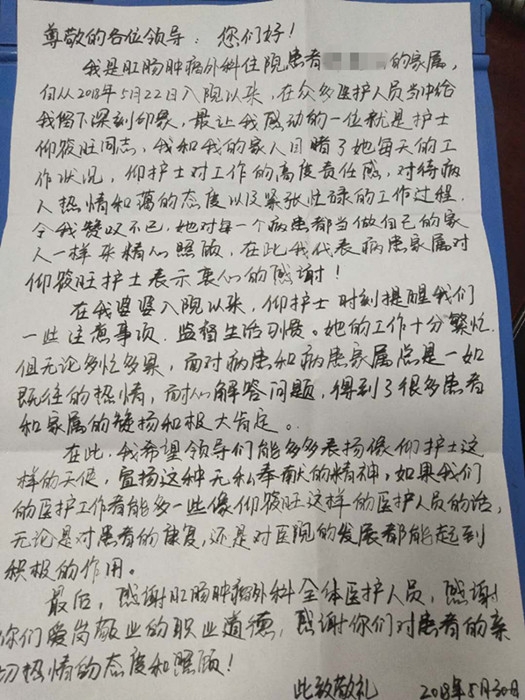 尊敬的各位领导：您们好！
我是肛肠肿瘤外科住院患者的家属，
自从2018年5月22日入院以来，在众多医护人员当中给
我留下深刻印象，最让我感动的一位就是护士
仰筱旺同志，我和我的家人目睹了她每天的工
作状况，仰护士对工作的高度责任感，对待病
人热情和蔼的态度以及紧张忙碌的工作过程，
令我赞叹不已，她对每一个病患都当做自己的家
人一样来精心照顾，在此我代表病患家属对
仰筱旺护士表示衷心的感谢！
在我婆婆入院以来，仰护士时刻提醒我们
一些注意事项、监督生活习惯。她的工作十分繁忙，
但无论多忙多累，面对病患和病患家属总是一如
既往的热情，耐心解答问题，得到了很多患者
和家属的赞扬和极大肯定。
在此，我希望领导们能多多表扬像仰护士这
样的天使，宣扬这种无私奉献的精神，如果我们
的医护工作者能多一些像仰筱旺这样的医护人员的话，
无论是对患者的康复，还是对医院的发展都能起到
积极的作用。
最后，感谢肛肠肿瘤外科全体医护人员，感谢
你们爱岗敬业的职业道德，感谢你们对患者的亲
切热情的态度和照顾！
此致敬礼 2018年5月30日